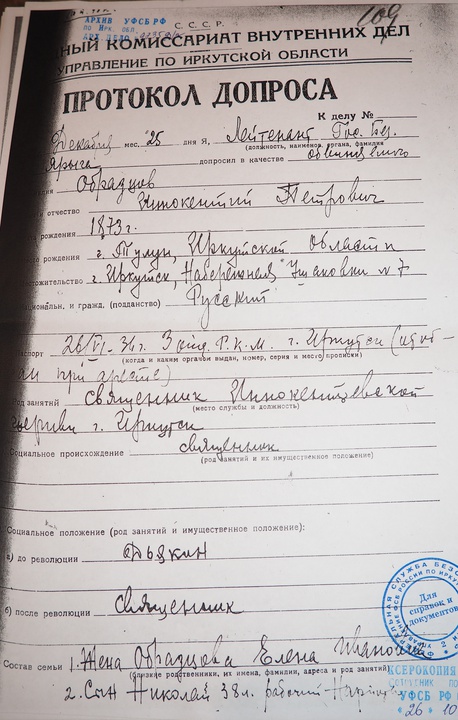 АРХИВ УФСБ РФ
по Ирк. обл.
АРХ. ДЕЛО
109
С.С.С.Р.
НЫЙ КОМИССАРИАТ ВНУТРЕННИХ ДЕЛ
УПРАВЛЕНИЕ ПО ИРКУТСКОЙ ОБЛАСТИ
ПРОТОКОЛ ДОПРОСА
К делу №
Декабря мес. 25 дня Я, Лейтенант Гос. Без.
(должность, наименов. органа, фамилия
Ярыга допросил в качестве обвиняемого
Образцов
и отчество Иннокентий Петрович
рождения 1873 г.
рождения г. Тулун, Иркутской области
жительство г. Иркутск, Набережная Ушаковки №7
циональн. и гражд. (подданство) Русский
порт 26/VI-36г. 3 отд. Р.К.М. г. Иркутск
(когда и каким органом выдан, номер, серия и место прописки)
при аресте)
од занятий священник Иннокентьевской
(место службы и должность)
церкви г. Иркутск
Социальное происхождение священник
(род занятий и их имущественное положение)
Социальное положение (род занятий и имущественное положение):
а) до революции Дьякин
б) после революции Священник
Для справок и документов
Состав семьи 1. Жена Образцова Елена Ивановна
(близкие родственники, их имена, фамилии, адреса и род занятий)
2. Сын Николай 38 л. рабочий
КСЕРОКОПИЯ
УФСБ РФ
26 10